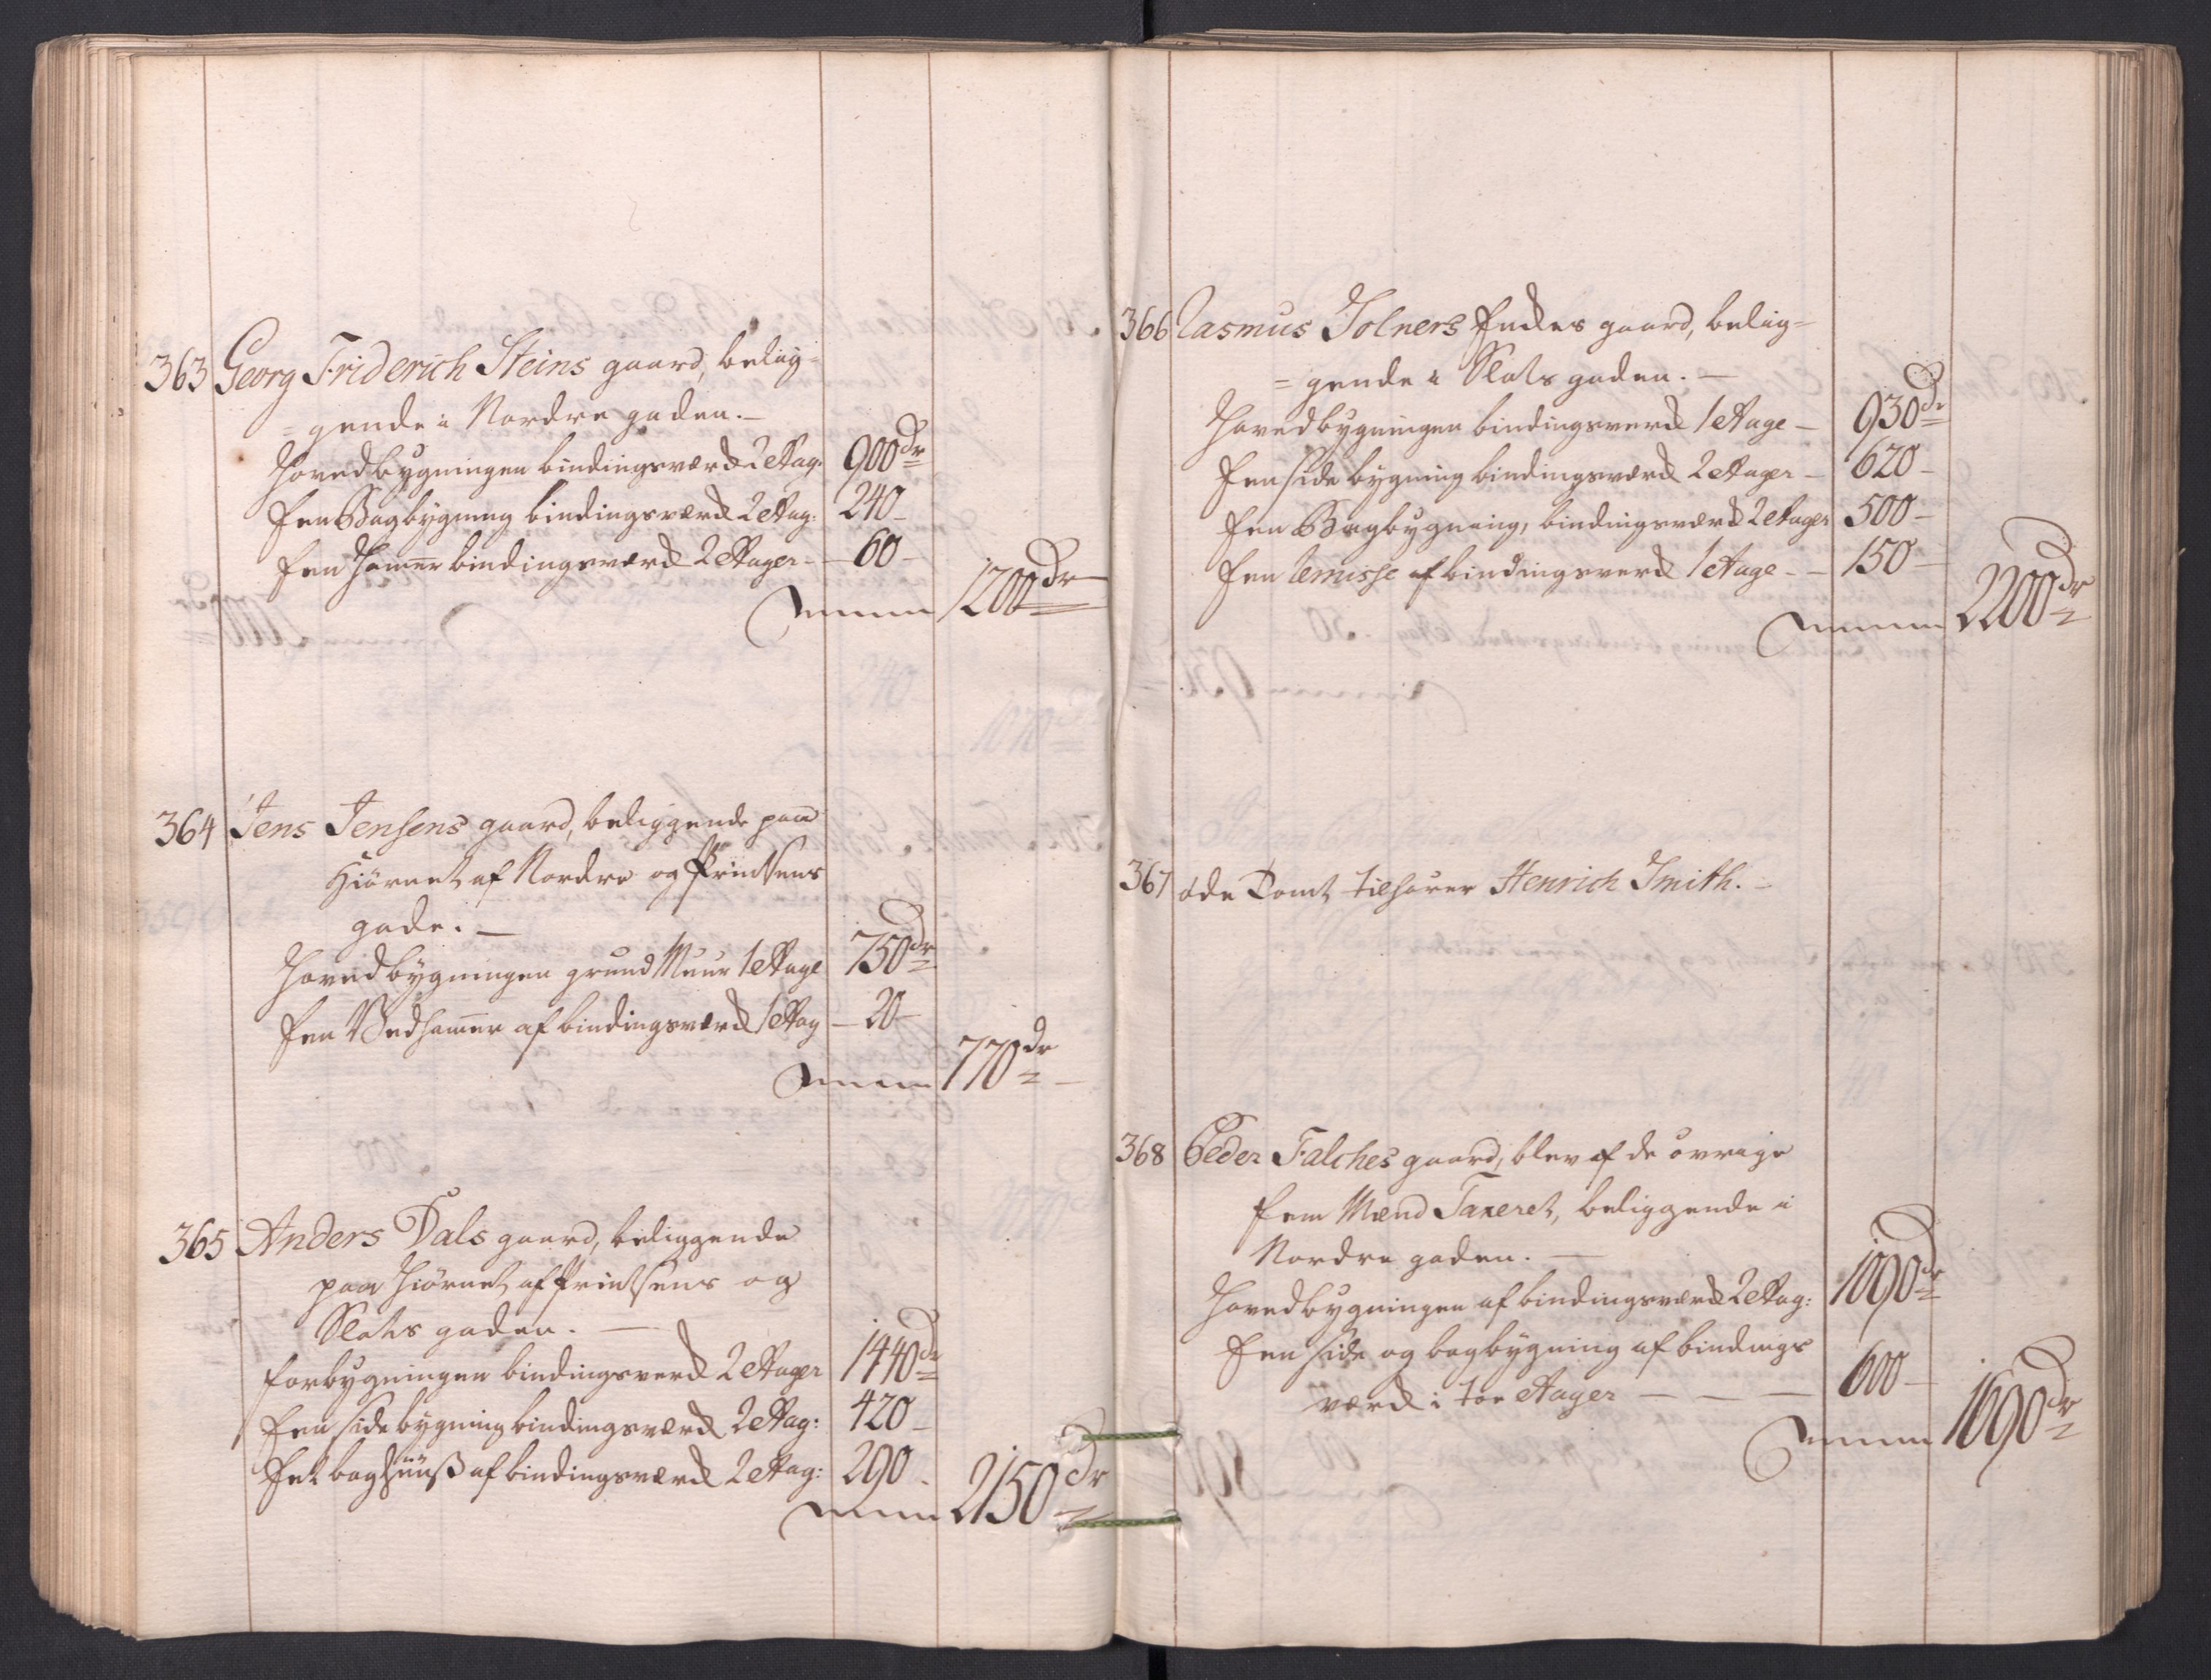 363 Georg Friderich Steins gaard, belig-
= gende i Nordre gaden. —
Hovedbygningen bindingsværd 2 Etag: 900 dr
Een Bagbygning bindingsværd 2 Etag: 240 —
Een Skamer bindingsværd 2 Etager — 60 —
Summa 1200 Dr
364 Jens Jensens gaard, beliggende paa
Hiörnet af Nordre og Printsens
gade. —
Hovedbygningen grund Muur 1 Etage 750 dr
Een Vedskamer af bindingsværd 1 Etag — 20 —
Summa 770 dr —
365 Anders Dals gaard, beliggende
paa Hiörnet af Printsens og
Slots gaden. —
Forbygningen bindingsverd 2 Etager 1440 dr
Een side bygning bindingsværd 2 Etag: 420 —
Eet baghuuß af bindingsværd 2 Etag: 290 -
Summa 2150 Dr
366 Rasmus Tolners Enckes gaard, belig=
= gende i Slots gaden. —
Hovedbygningen bindingsverd 1 Etage — 930 dr
Een side bygning bindingsværd 2 Etager — 620 —
Een Bagbygning, bindingsværd 2 Etager 500 —
Een Remisse af bindingsverd 1 Etage — — 150 —
Summa 2200 dr
367 öde Tomt tilhörer Henrich Smith. —
368 Peder Falches gaard, blev af de övrige
fem Mænd Taxeret, beliggende i
Nordre gaden. —
Hovedbygningen af bindingsværd 2 Etag: 1090 dr
Een side og bagbygning af bindings
værd i toe Etager — — — 600 —
Summa 1690 dr